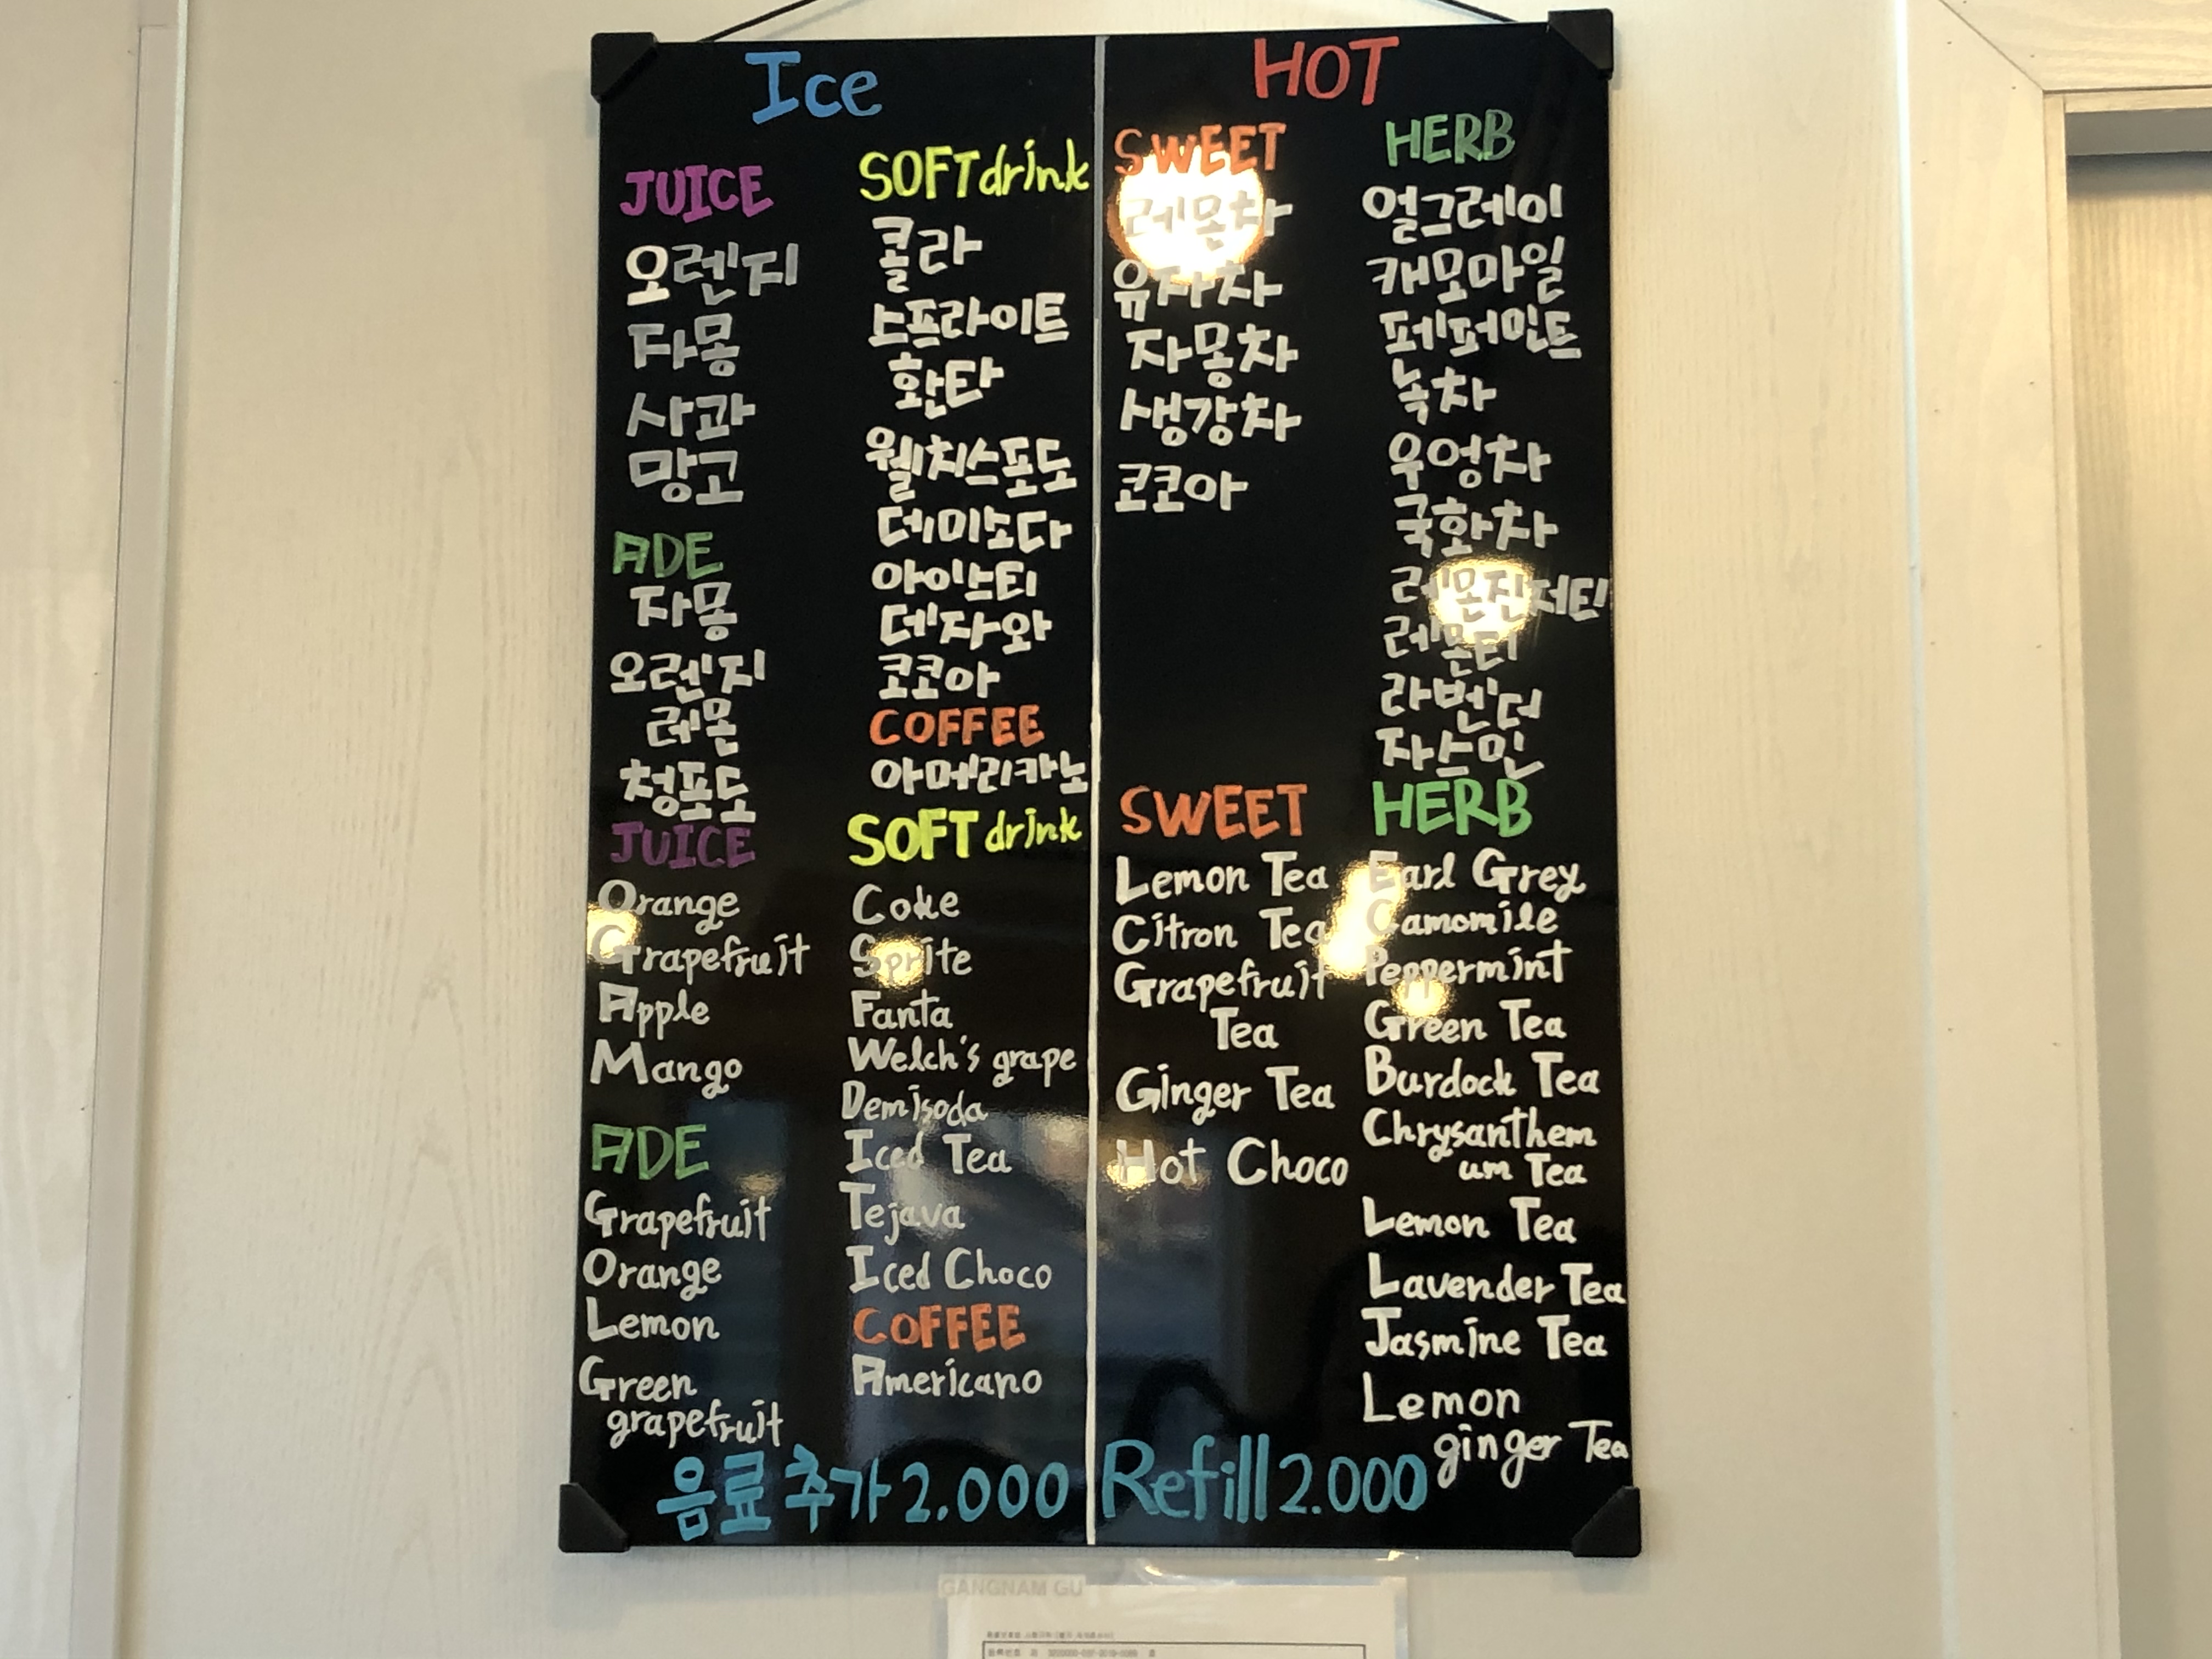 Ice
JUICE
오렌지
자몽
사과
망고
ADE
자몽
오렌지
레몬
청포도
SOFT drink
콜라
스프라이트
환타
웰치스포도
데미소다
아이스티
데자와
코코아
COFFEE
아메리카노
JUICE
Orange
Grapefruit
Apple
Mango
ADE
Grapefruit
Orange
Lemon
Green
grapefruit
SOFT drink
Coke
Sprite
Fanta
Welch's grape
Demisoda
Iced Tea
Tejava
Iced Choco
COFFEE
Americano
음료 추가 2.000
HOT
SWEET
레몬차
유자차
자몽차
생강차
코코아
HERB
얼그레이
캐모마일
페퍼민트
녹차
우엉차
국화차
레몬진저티
레몬티
라벤더
자스민
SWEET
Lemon Tea
Citron Tea
Grapefruit
Tea
Ginger Tea
Hot Choco
HERB
Earl Grey
Camomile
Peppermint
Green Tea
Burdock Tea
Chrysanthem
um Tea
Lemon Tea
Lavender Tea
Jasmine Tea
Lemon
ginger Tea
Refill 2.000
GANGNAM GU